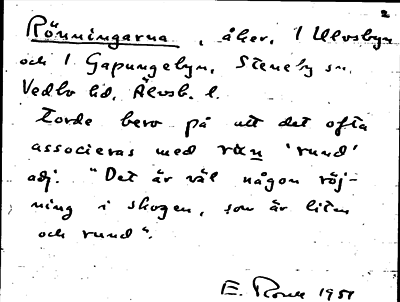 2
Rönningarna, åker, 1 Ulvsbyn
och 1 Gapungebyn, Steneby sn,
Vedbo hd, Älvsb. l.
Torde bero på att det ofta
associeras med runn 'rund'
adj. "Det är väl någon röj-
ning i skogen, som är liten
och rund".
E. 1951